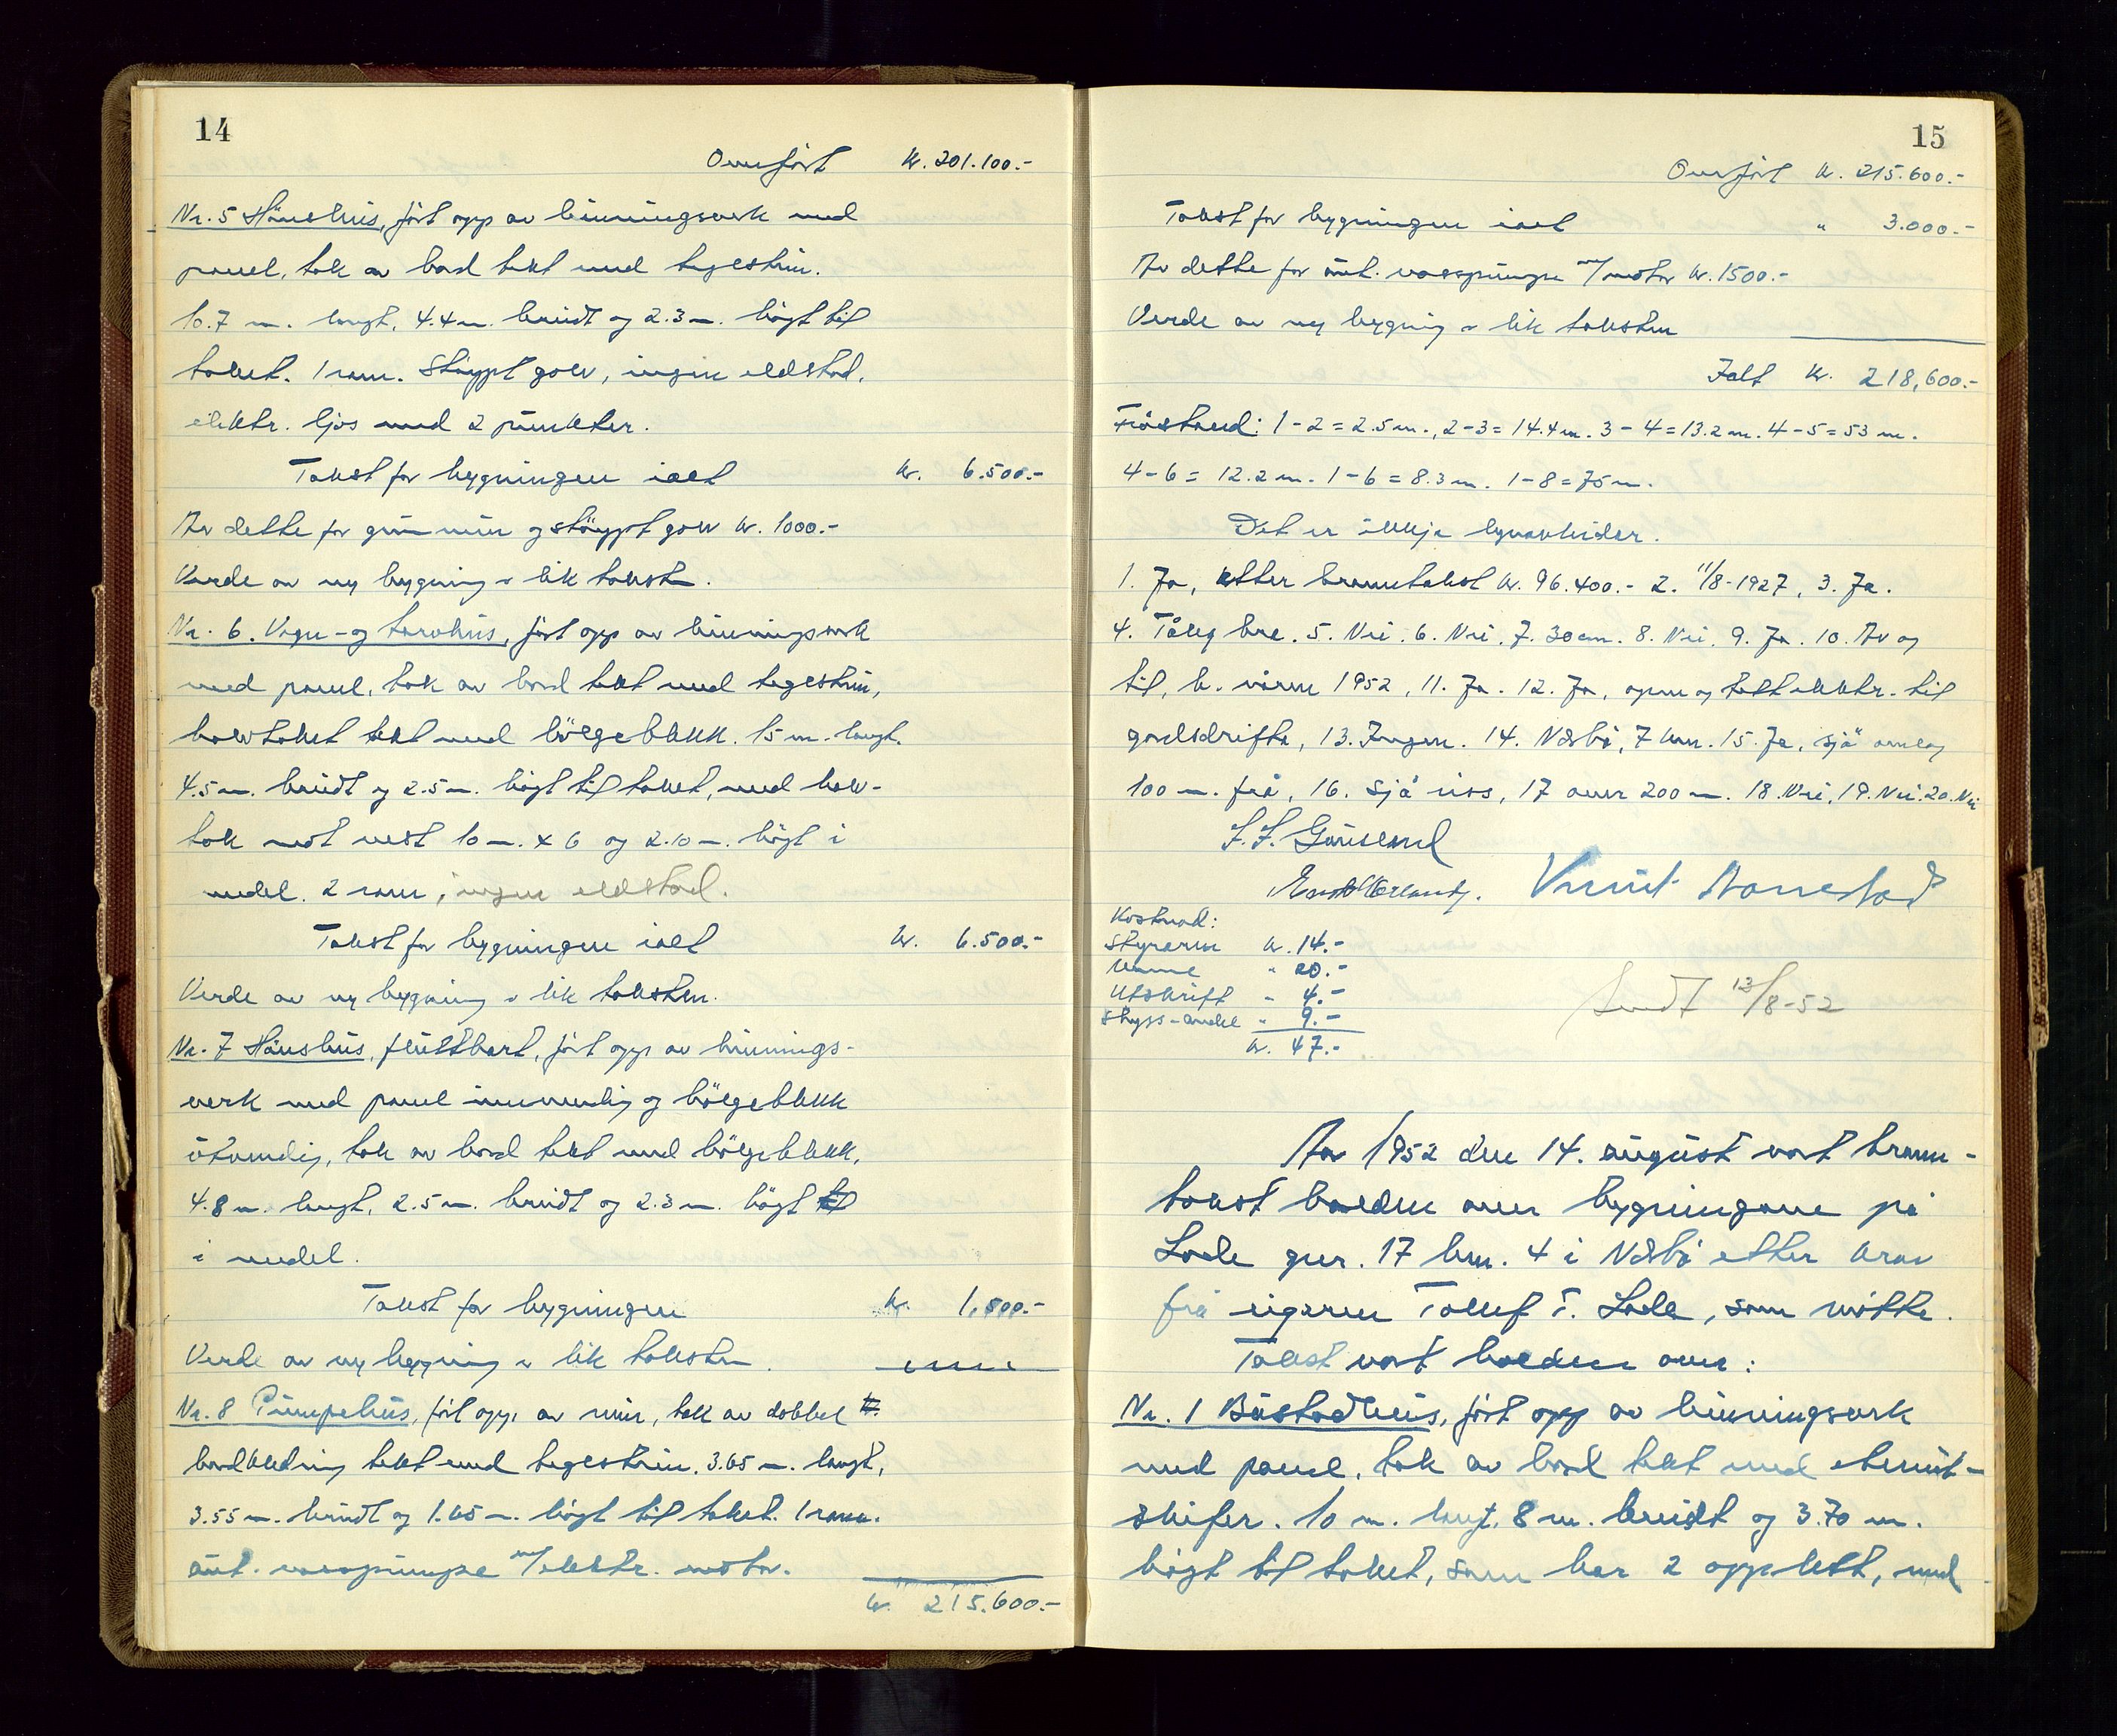 14
Overført kr. 201.100.-
Nr. 5 Hønsehus, ført opp av binningsverk med
panel, tak av bord tekt med teglstein.
10.7 m. langt, 4.4 m. breidt og 2.3 m. høgt til
taket. 1 rom. Støypt golv, ingen eldstad,
elektr. ljos med 2 punkter.
Takst for bygningen ialt kr. 6.500.-
Av dette for grunnmur og støypt golv kr. 1000.-
Verde av ny bygning = lik taksten.
Nr. 6. Vogn- og torvhus, ført opp av binningsverk
med panel, tak av bord tekt med teglstein,
halvtaket tekt med bølgeblekk. 15 m. langt.
4.5 m. breidt og 2.5 m. høgt til taket, med halv-
tak mot vest 10 m. x 6 og 2.10 m. høgt i
medel. 2 rom, ingen eldstad.
Takst for bygningen ialt kr. 6.500.-
Verde av ny bygning = lik taksten.
Nr. 7 Hønshus, fluttbart, ført opp av binnings-
verk med panel innvendig og bølgeblekk
utvendig, tak av bord tekt med bølgeblekk,
4.8 m. langt, 2.5 m. breidt og 2.3 m. høgt
i medel.
Takst for bygningen kr. 1.500.-
Verde av ny bygning = lik taksten.
Nr. 8 Pumpehus, ført opp av mur, tak av dobbel
bordkledning tekt med teglstein. 3.65 m. langt,
3.55 m. breidt og 1.65 m. høgt til taket. 1 rom.
aut. vasspumpe m/elektr. motor.
kr. 215.600.-
15
Overført kr. 215.600.-
Takst for bygningen ialt " 3.000.-
Av dette for aut. vasspumpe m/motor kr. 1500.-
Verde av ny bygning = lik taksten
Ialt kr. 218,600.-
Fråstand: 1-2 = 2.5 m., 2-3 = 14.4 m. 3-4 = 13.2 m. 4-5 = 53 m.
4-6 = 12.2 m. 1-6 = 8.3 m. 1-8 = 75 m.
Det er ikkje lynavleidar.
1. Ja, etter branntakst kr. 96.400.- 2. 11/8-1927, 3. Ja.
4. Tåleg bra. 5. Nei. 6. Nei. 7. 30 cm. 8. Nei. 9. Ja. 10. Av og
til, b. våren 1952, 11. Ja. 12. Ja, open og tett elektr. til
gardsdrifta, 13. Ingen. 14. Nærbø, 7 km. 15. Ja, sjå omlag
100 m. frå, 16. Sjå riss, 17 over 200 m. 18. Nei, 19. Nei. 20. Nei
Kostnad:
Styraren kr. 14.-
Menne " 20.-
Utskrift " 4.-
Skyss-andel " 9.-
kr. 47.-
Sendt 13/8-52
År 1952 den 14. august vart brann-
takst halden over bygningane på
Lode gnr. 17 bnr. 4 i Nærbø etter krav
frå eigaren Tollef T. Lode, som møtte.
Takst vart halden over:
Nr. 1 Bustadhus, ført opp av binningsverk
med panel, tak av bord tekt med eternit-
skifer. 10 m. langt, 8 m. breidt og 3.70 m.
høgt til taket, som har 2 opplett, med